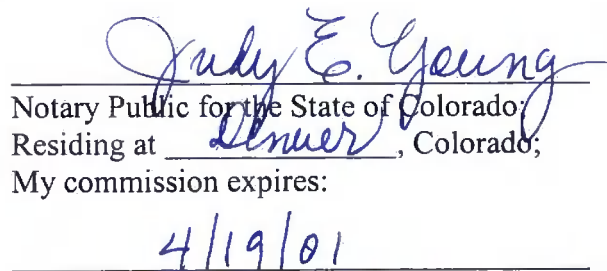 Judy E. Young
Notary Public for the State of Colorado;
Residing at Denver, Colorado;
My commission expires:
4/19/01